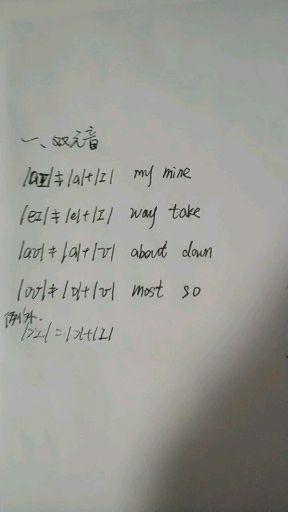 一、双元音
/aɪ/≠/a/+/ɪ/ my mine
/eɪ/≠/e/+/ɪ/ way take
/aʊ/≠/a/+/ʊ/ about down
/oʊ/≠/ɒ/+/ʊ/ most so
例外.
/ɔɪ/=/ɔ/+/ɪ/